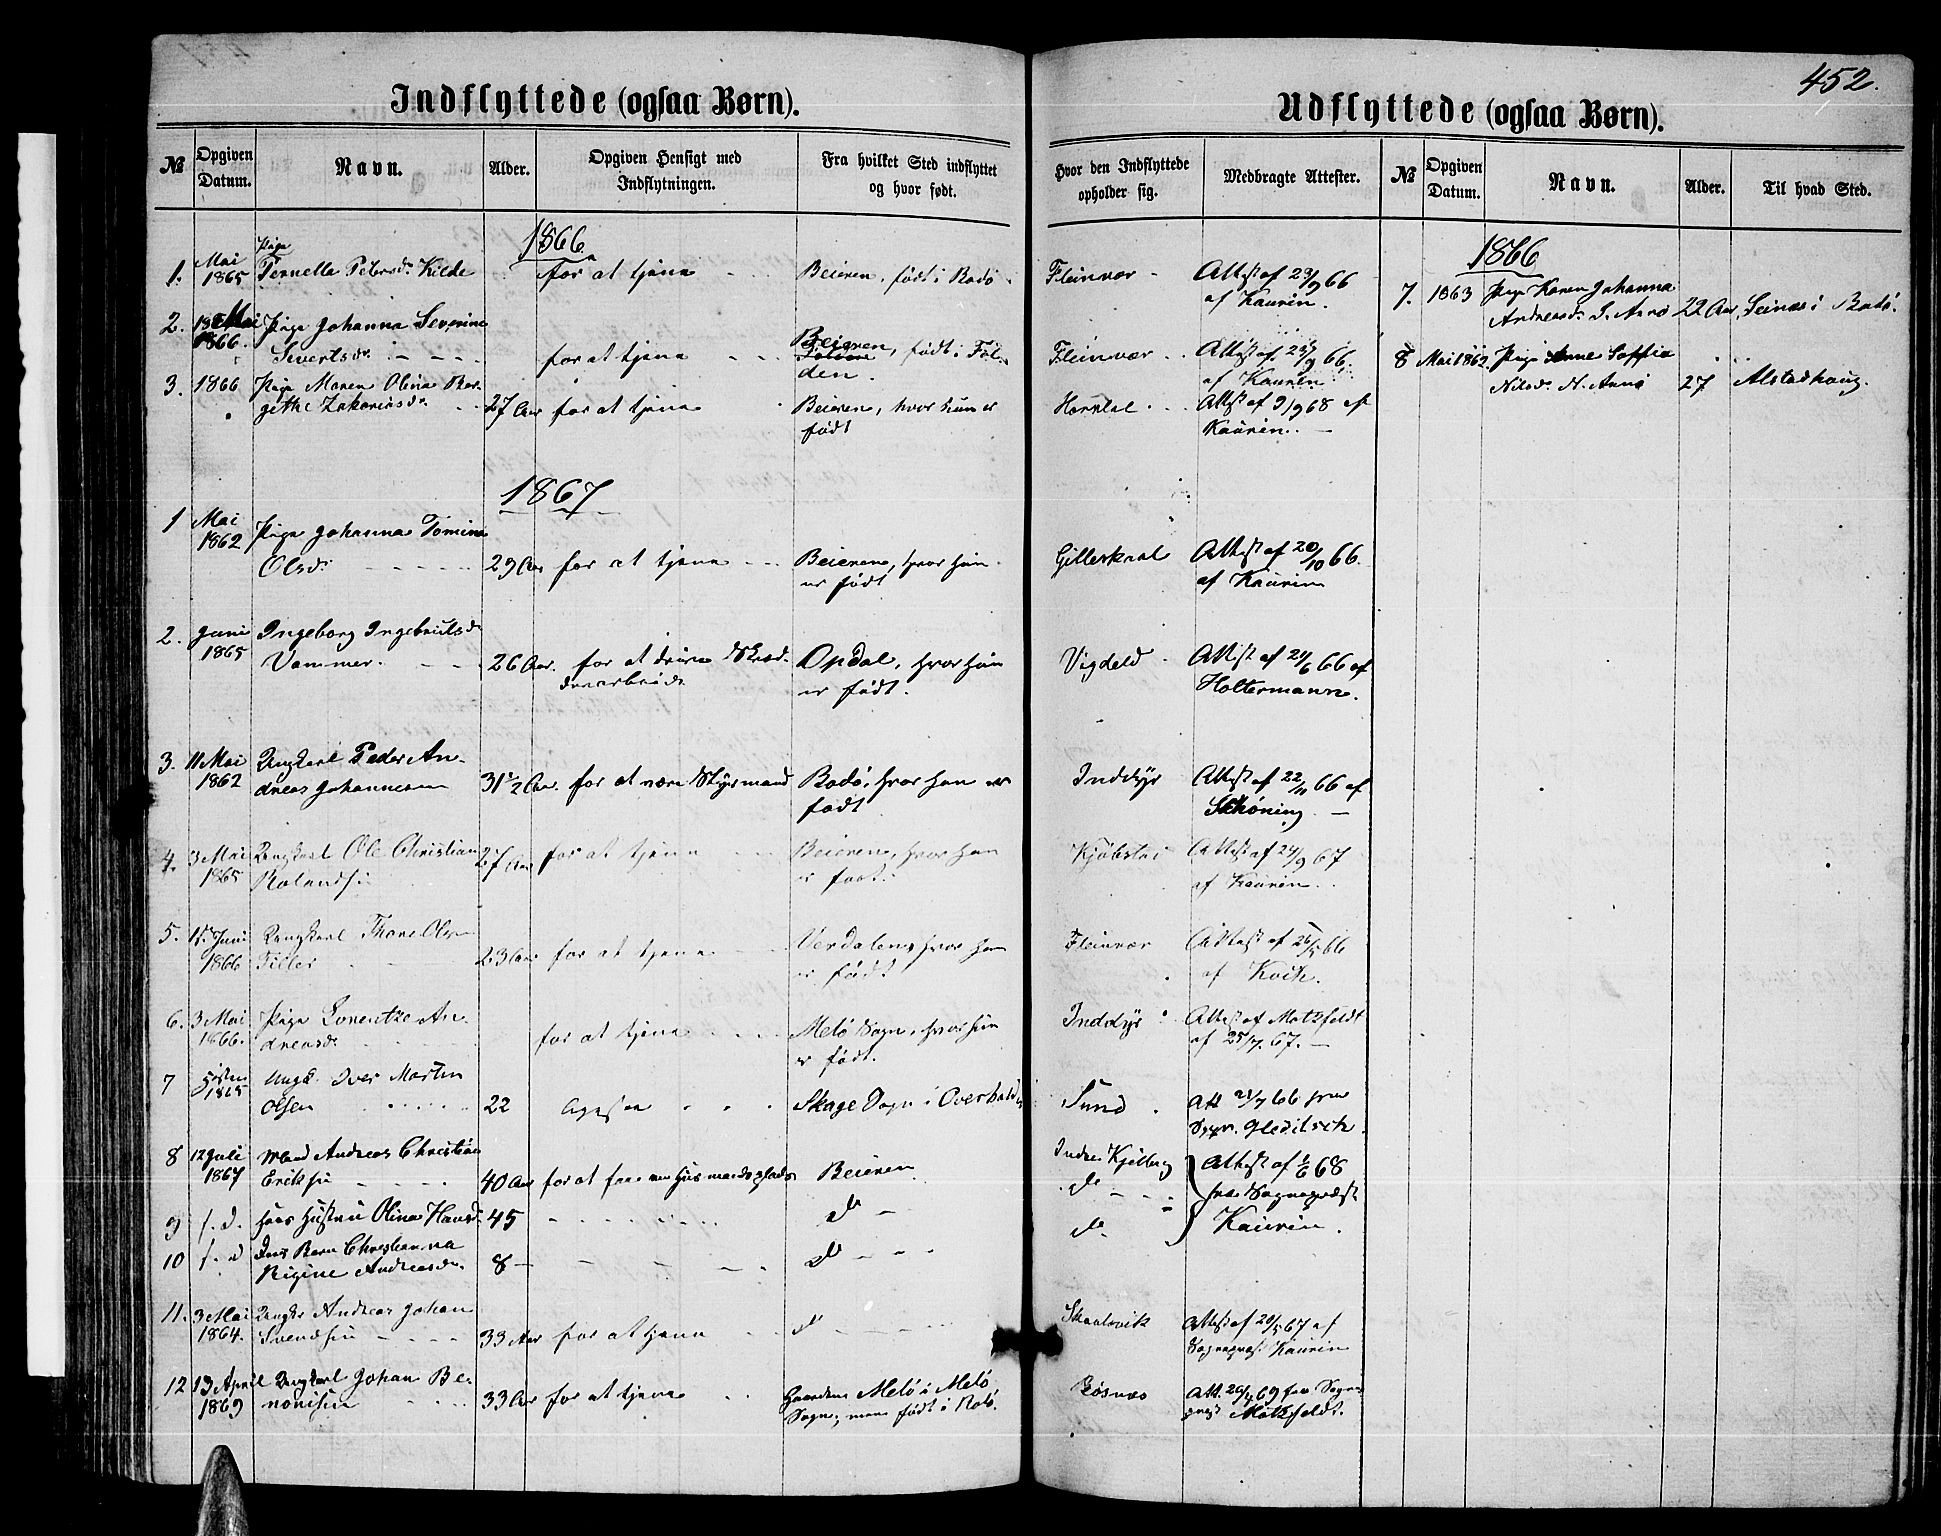 452.
Indflyttede (ogsaa Børn).
Udflyttede (ogsaa Børn).
№ Opgiven Datum. Navn. Alder. Opgiven Hensigt med Indflytningen. Fra hvilket Sted indflyttet og hvor født. Hvor den Indflyttede opholder sig. Medbragte Attester. № Opgiven Datum. Navn. Alder. Til hvad Sted.
1866
1. Mai 1865 Pige Pernella Petersd. Kilde for at tjene Beieren, født i Bodö Fleinvær Attest af 29/9 66
af Kaurin.
2. Mai 1866. Pige Johanna Severine
Sivertsd. for at tjene Beieren, født i Fol-
den. Fleinvær Attest af 29/9 66
af Kaurin
3. 1866 Pige Maren Olina
Zakariasd. 27 Aar for at tjene Beieren, hvor hun er
født Attest af 9/9 68 af
Kaurin.
1867
1 Mai 1862 Pige Johanna Tomine
Olsd. 29 Aar for at tjene Beieren, hvor hun
er født Gilleskaal Attest af 20/10 66.
af Kaurin
2. Juni 1865 Ingeborg Ingebritsd.
Vammer. 26 Aar. for at drive
Opdal, hvor hun
er født. Vigdeld Attest af 66 af
Holtermann.
3. 11 Mai 1862 Ungkarl Peder An-
dreas Johannesen 31 1/2 Aar. for at være Styrmand Bodö, hvor han er
født Inddyr Attest af 22/11 66 af
Schöning.
4. 3 Mai 1865 Ungkarl Ole Christian
27 Aar for at tjene Beieren, hvor han
er født. Kjöbstad Attest af 24/9 67
af Kaurin.
5. 15. Juni 1866 Ungkarl Thore Olsen
Tiller 23 Aar for at tjene Verdalen, hvor han
er født Fleinvær Attest af 26/5 66
af Kvik.
6. 3 Mai 1866. Pige Lorentze An-
dreasd. for at tjene Melö Sogn, hvor hun
er født. Inddyr Attest af Motzfeldt
af 25/7. 67.
7 1865 Ungk. Iver Martin
Olsen 22 Ogsaa Skage Sogn i Overhalden Sund Att. 66 fra
Gleditsch.
8 12 Juli 1867 Andreas Christian
Eriksen 40 Aar for at faae en Husmandsplads Beieren Indre Kjelling Attest af 1/6 68
fra Sognepræst
Kaurin.
9 s. d. Hans Hustru Olina Hansd. 45 do do
10 s. d Barn Christianna
Regine Andreasd. 8 do do
11. 3 Mai 1864. Ungk. Andreas Johan
Svendsen 33 Aar for at tjene do Skaalsvik Attest af 20/5 67 af
Sognepræst Kaurin
12 13 April 1869 Ungkarl Johan Be-
nonisen 33 Aar for at tjene Gaarden Melö i Melö
Sogn, men født i Att. 20/4 69 fra Sogne-
præst Motzfeldt.
1866
7. 1863 Pige Karen Johanna
Andreasd. S. Arnö 22 Aar. Seines i Bodö.
8 Mai 1862. Pige Anne Soffia
Nilsd. N. Arnö 27 Alstadhaug.